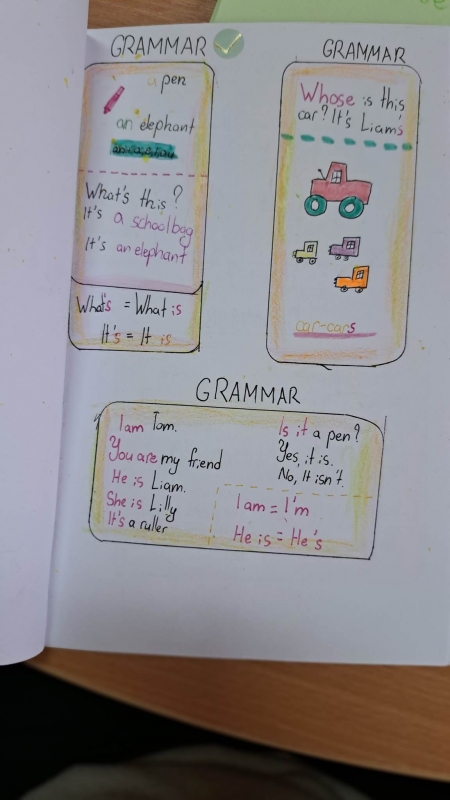 GRAMMAR
a pen
an elephant
What's this?
It's a schoolbag
It's an elephant
What's = What is
It's = It is
GRAMMAR
Whose is this
car? It's Liam's
car-cars
GRAMMAR
I am Tom.
You are my friend
He is Liam.
She is Lilly
It's a ruller
Is it a pen?
Yes, it is.
No, It isn't.
I am = I'm
He is = He's